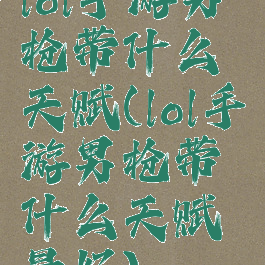 lol手游男
枪带什么
天赋(lol手
游男枪带
什么天赋
最好)